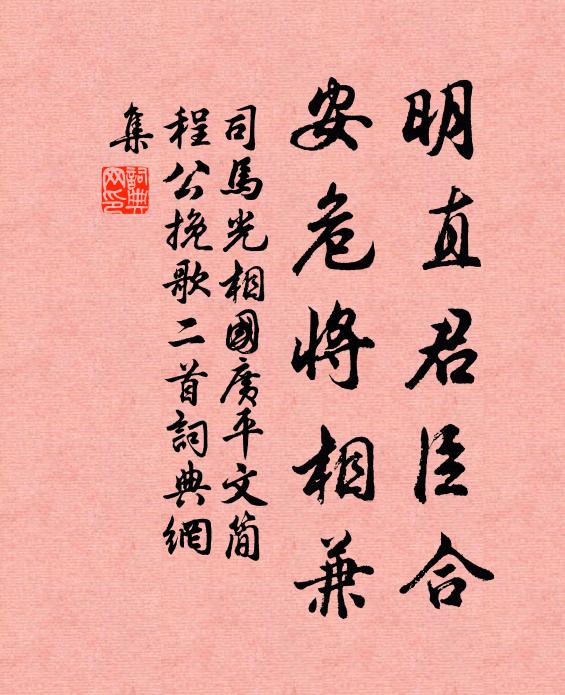 明直君臣合
安危將相兼
司馬光相國廣平文簡
程公挽歌二首詞典網
集
詞典
网印